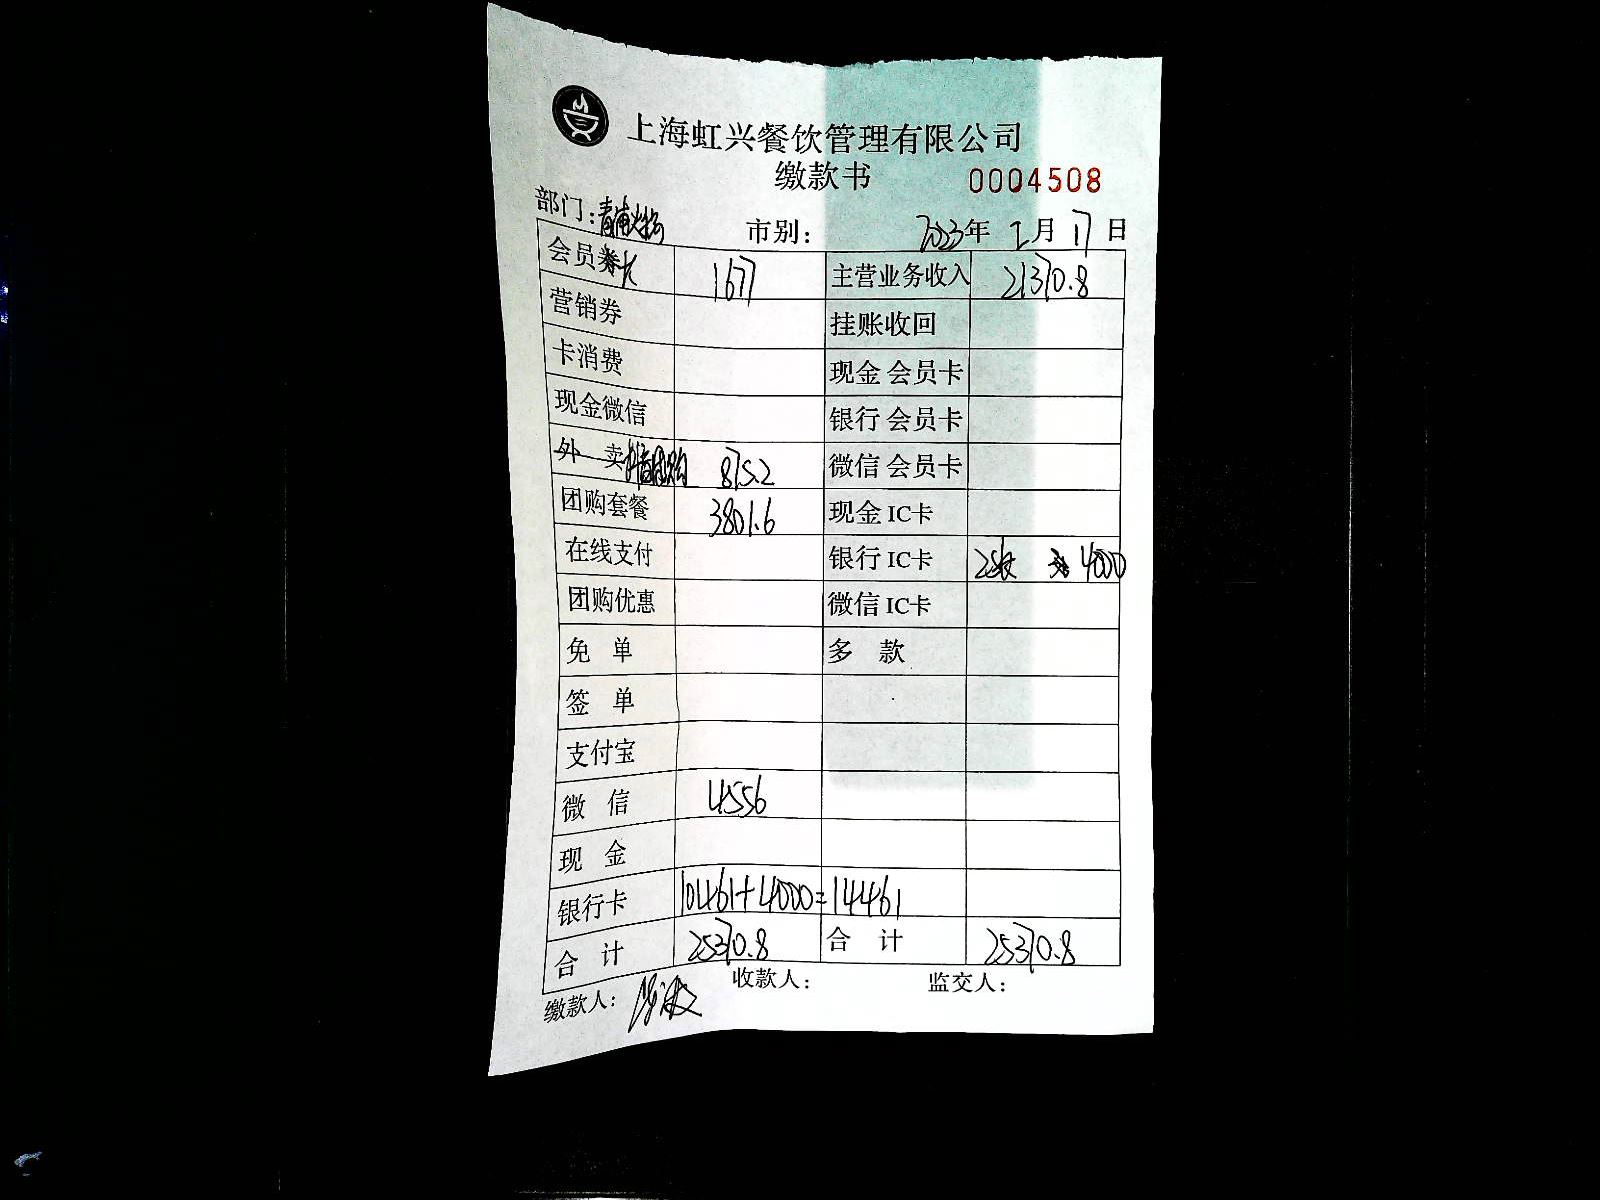 上海虹兴餐饮管理有限公司
缴款书 0004508
部门: 市别: 2023年 2月 17日
会员 1677 主营业务收入 21370.8
营销券 挂账收回
卡消费 现金 会员卡
现金微信 银行 会员卡
外 卖 875.2 微信 会员卡
团购套餐 3801.6 现金 IC卡
在线支付 银行 IC卡 4000
团购优惠 微信 IC卡
免 单 多 款
签 单
支付宝
微 信 4556
现 金
银行卡 10461+4000=14461
合 计 25370.8 合 计 25370.8
缴款人: 收款人: 监交人: